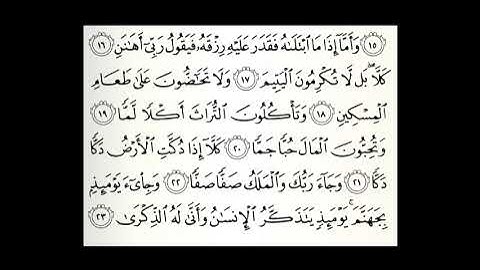 ١٥ وَأَمَّآ إِذَا مَا ٱبۡتَلَىٰهُ فَقَدَرَ عَلَيۡهِ رِزۡقَهُۥ فَيَقُولُ رَبِّيٓ أَهَٰنَنِ ١٦
كـَلَّاۖ بَل لَّا تُكۡرِمُونَ ٱلۡيَتِيمَ ١٧ وَلَا تَحَٰٓضُّونَ عَلَىٰ طَعَامِ
ٱلۡمِسۡكِينِ ١٨ وَتَأۡكُلُونَ ٱلتُّرَاثَ أَكۡلٗا لَّمّٗا ١٩
وَتُحِبُّونَ ٱلۡمَالَ حُبّٗا جَمّٗا ٢٠ كـَلَّآۖ إِذَا دُكَّتِ ٱلۡأَرۡضُ دَكّٗا
دَكّٗا ٢١ وَجَآءَ رَبُّكَ وَٱلۡمَلَكُ صَفّٗا صَفّٗا ٢٢ وَجِاْيٓءَ يَوۡمَئِذِۭ
بِجَهَنَّمَۚ يَوۡمَئِذٖ يَتَذَكَّرُ ٱلۡإِنسَٰنُ وَأَنَّىٰ لَهُ ٱلذِّكۡرَىٰ ٢٣